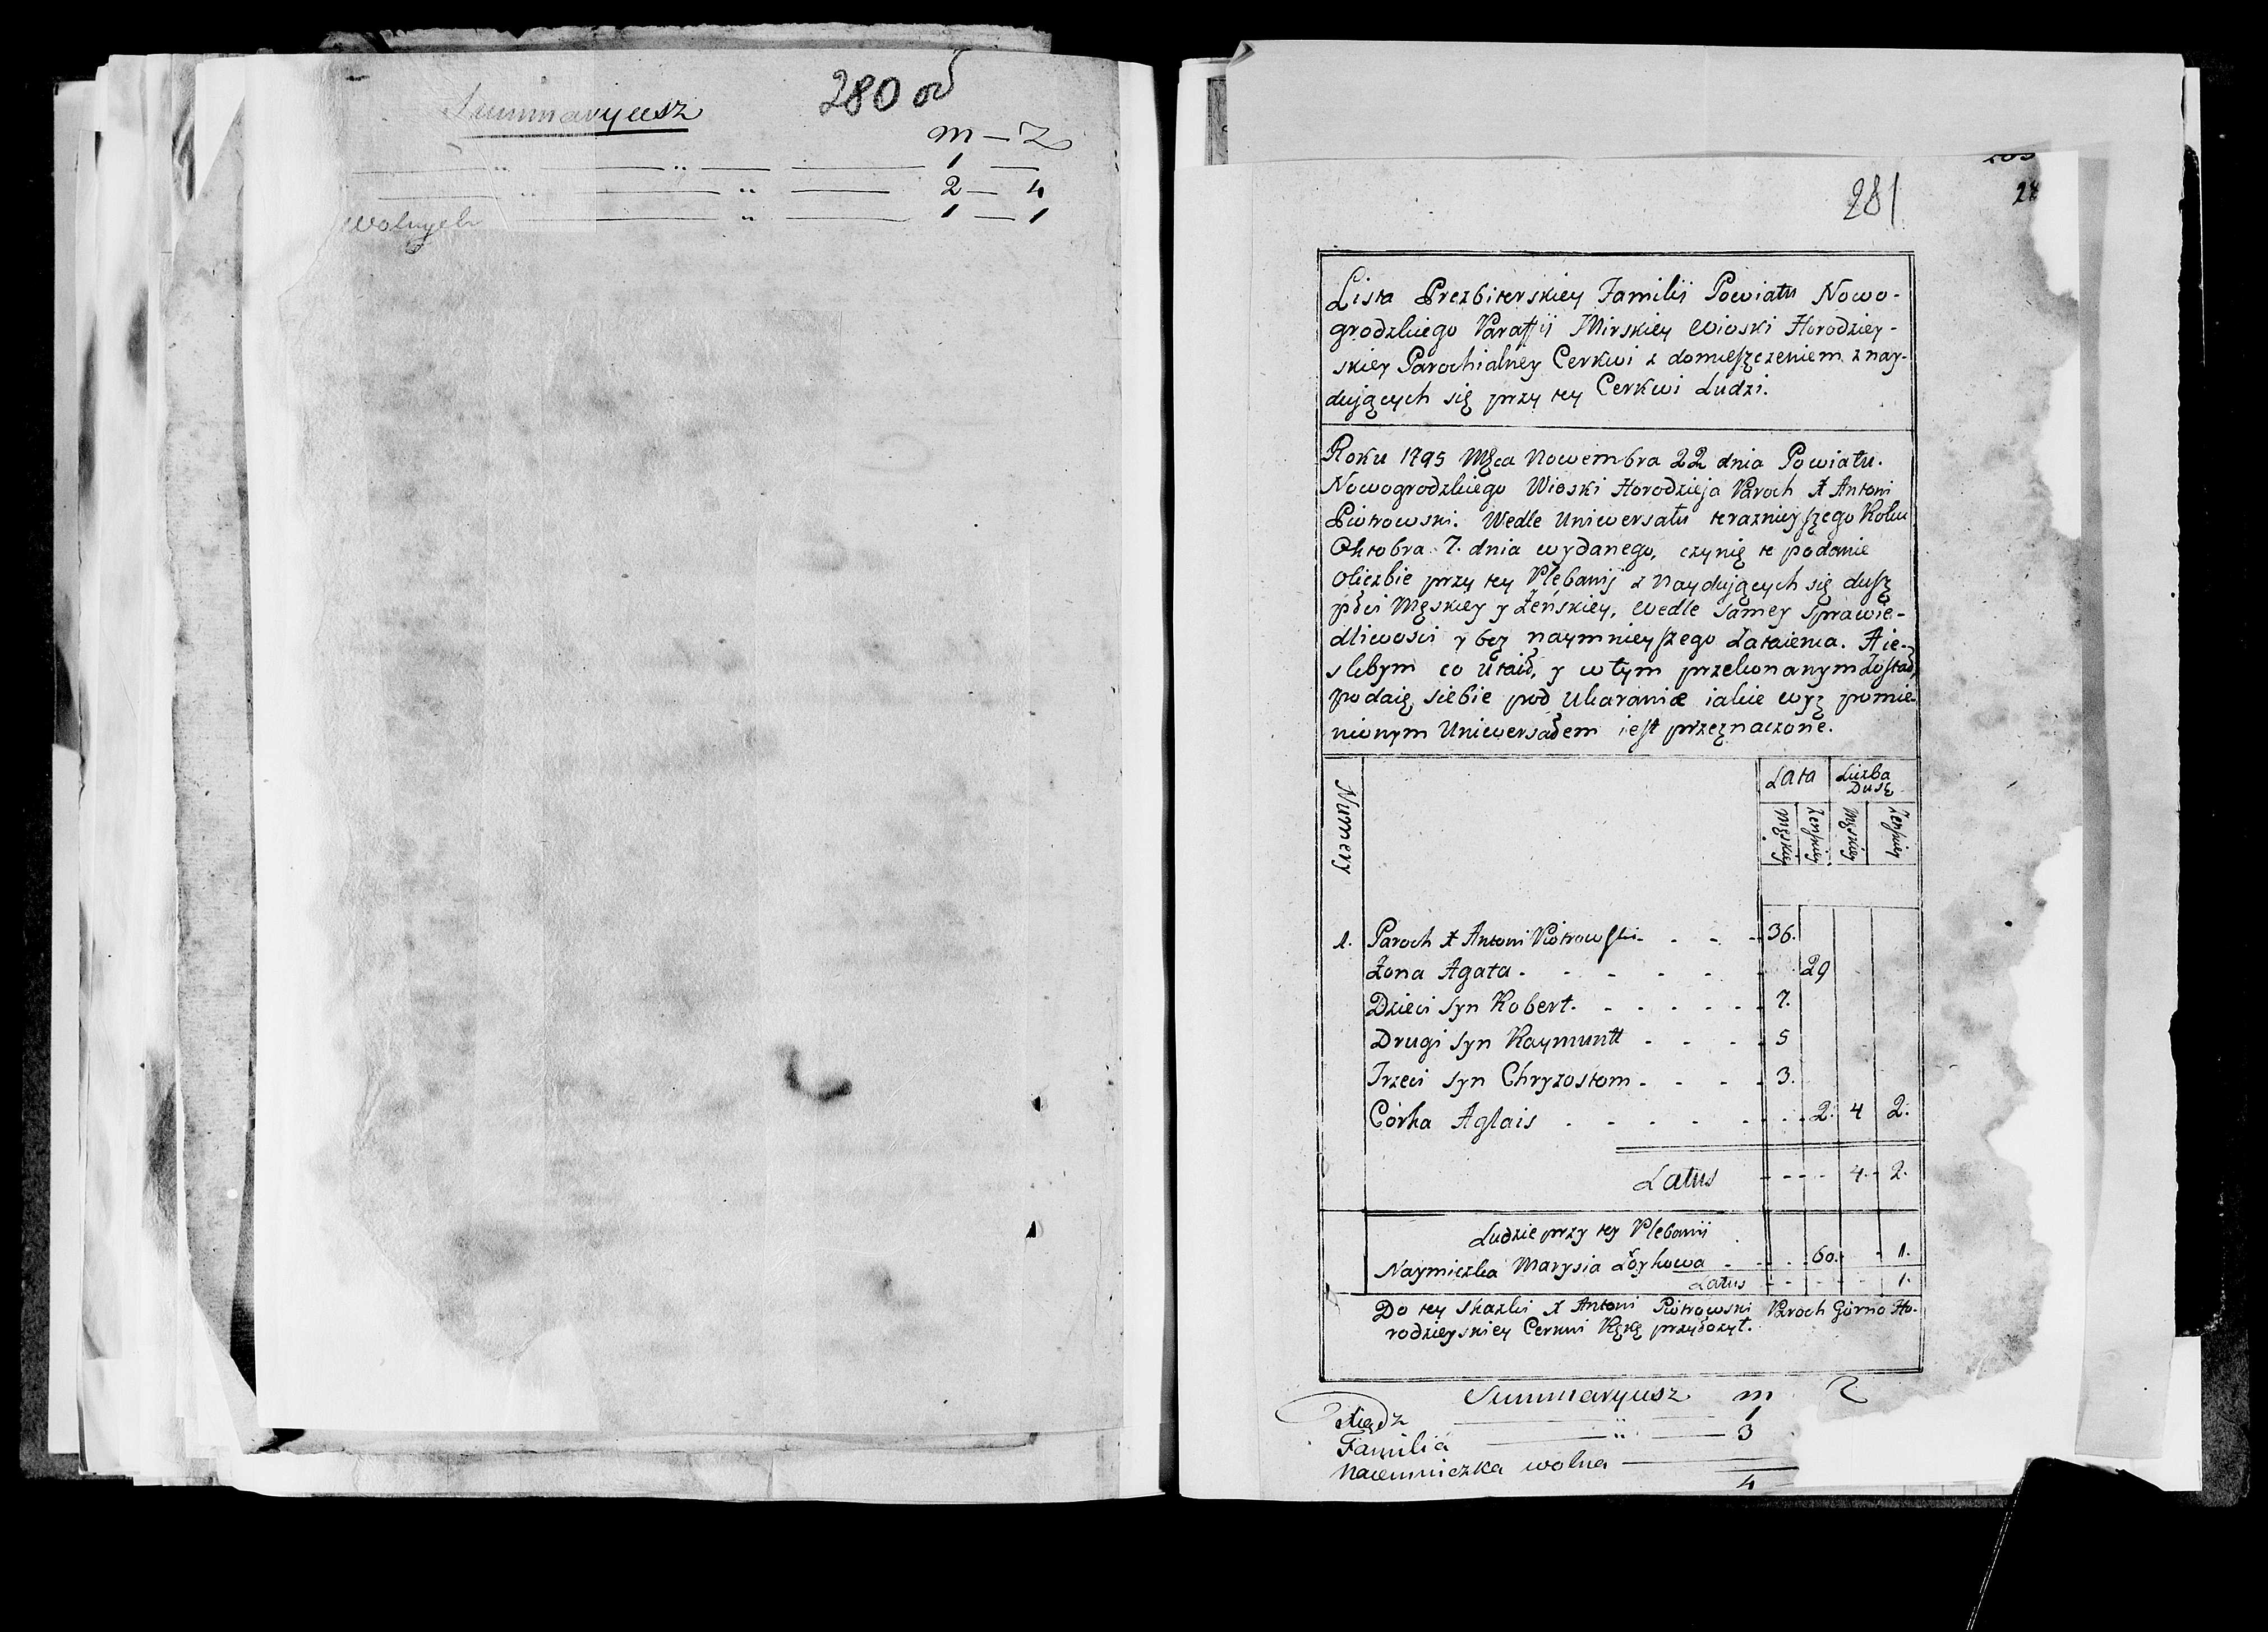 280 об
Summaryusz
m — Z
1 —
2 — 4
wolnych 1 — 1
281
Lista Prezbiterskiey Familii Powiatu Nowo-
grodzkiego Paraffii Mirskiey Wioski Horodziey-
skiey Parochialney Cerkwi z domieszczeniem znay-
dujących się przy tey Cerkwi Ludzi.
Roku 1795 Mąca Nowembra 22 dnia Powiatu.
Nowogrodzkiego Wioski Horodzieja Paroch X Antoni
Piotrowski. Wedle Uniwersału teraznieyszego Roku
Oktobra 7. dnia wydanego, czynię te podanie
oliczbie przy tey Plebanij znaydujących się dusz
płci Męskiey y Żeńskiey, wedle samey sprawie-
dliwości y bez naymnieyszego zataienia. A ie-
slibym co utaił, y wtym przekonanym został,
podaię siebie pod ukaranie iakie wyz pomie-
nionym Uniwersałem iest przeznaczone.
Numery Lata Liczba Dusz
Męskiey Żenskiey Męskiey Żenskiey
1. Paroch X Antoni Piotrowski - - - 36.
Żona Agata - - - - - - 29
Dzieci syn Robert - - - - - - 7.
Drugi syn Raymuntt - - - - 5
Trzeci syn Chryzostom - - - - 3.
Córka Aglais - - - - - - - 2. 4 2.
Latus - - - - 4. - 2.
Ludzie przy tey Plebanij
Naymiczka Marysia Łoykowa - - - - 60. - 1.
Latus - - - - - 1.
Do tey skazki X Antoni Piotrowski Paroch Górno Ho-
rodzieyskiey Cerkwi Rękę przyłożył.
Summaryusz m Z
Xiądz 1
Familia 3
Naiemniczka wolna
4